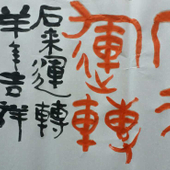 運轉
石来運轉
羊年吉祥